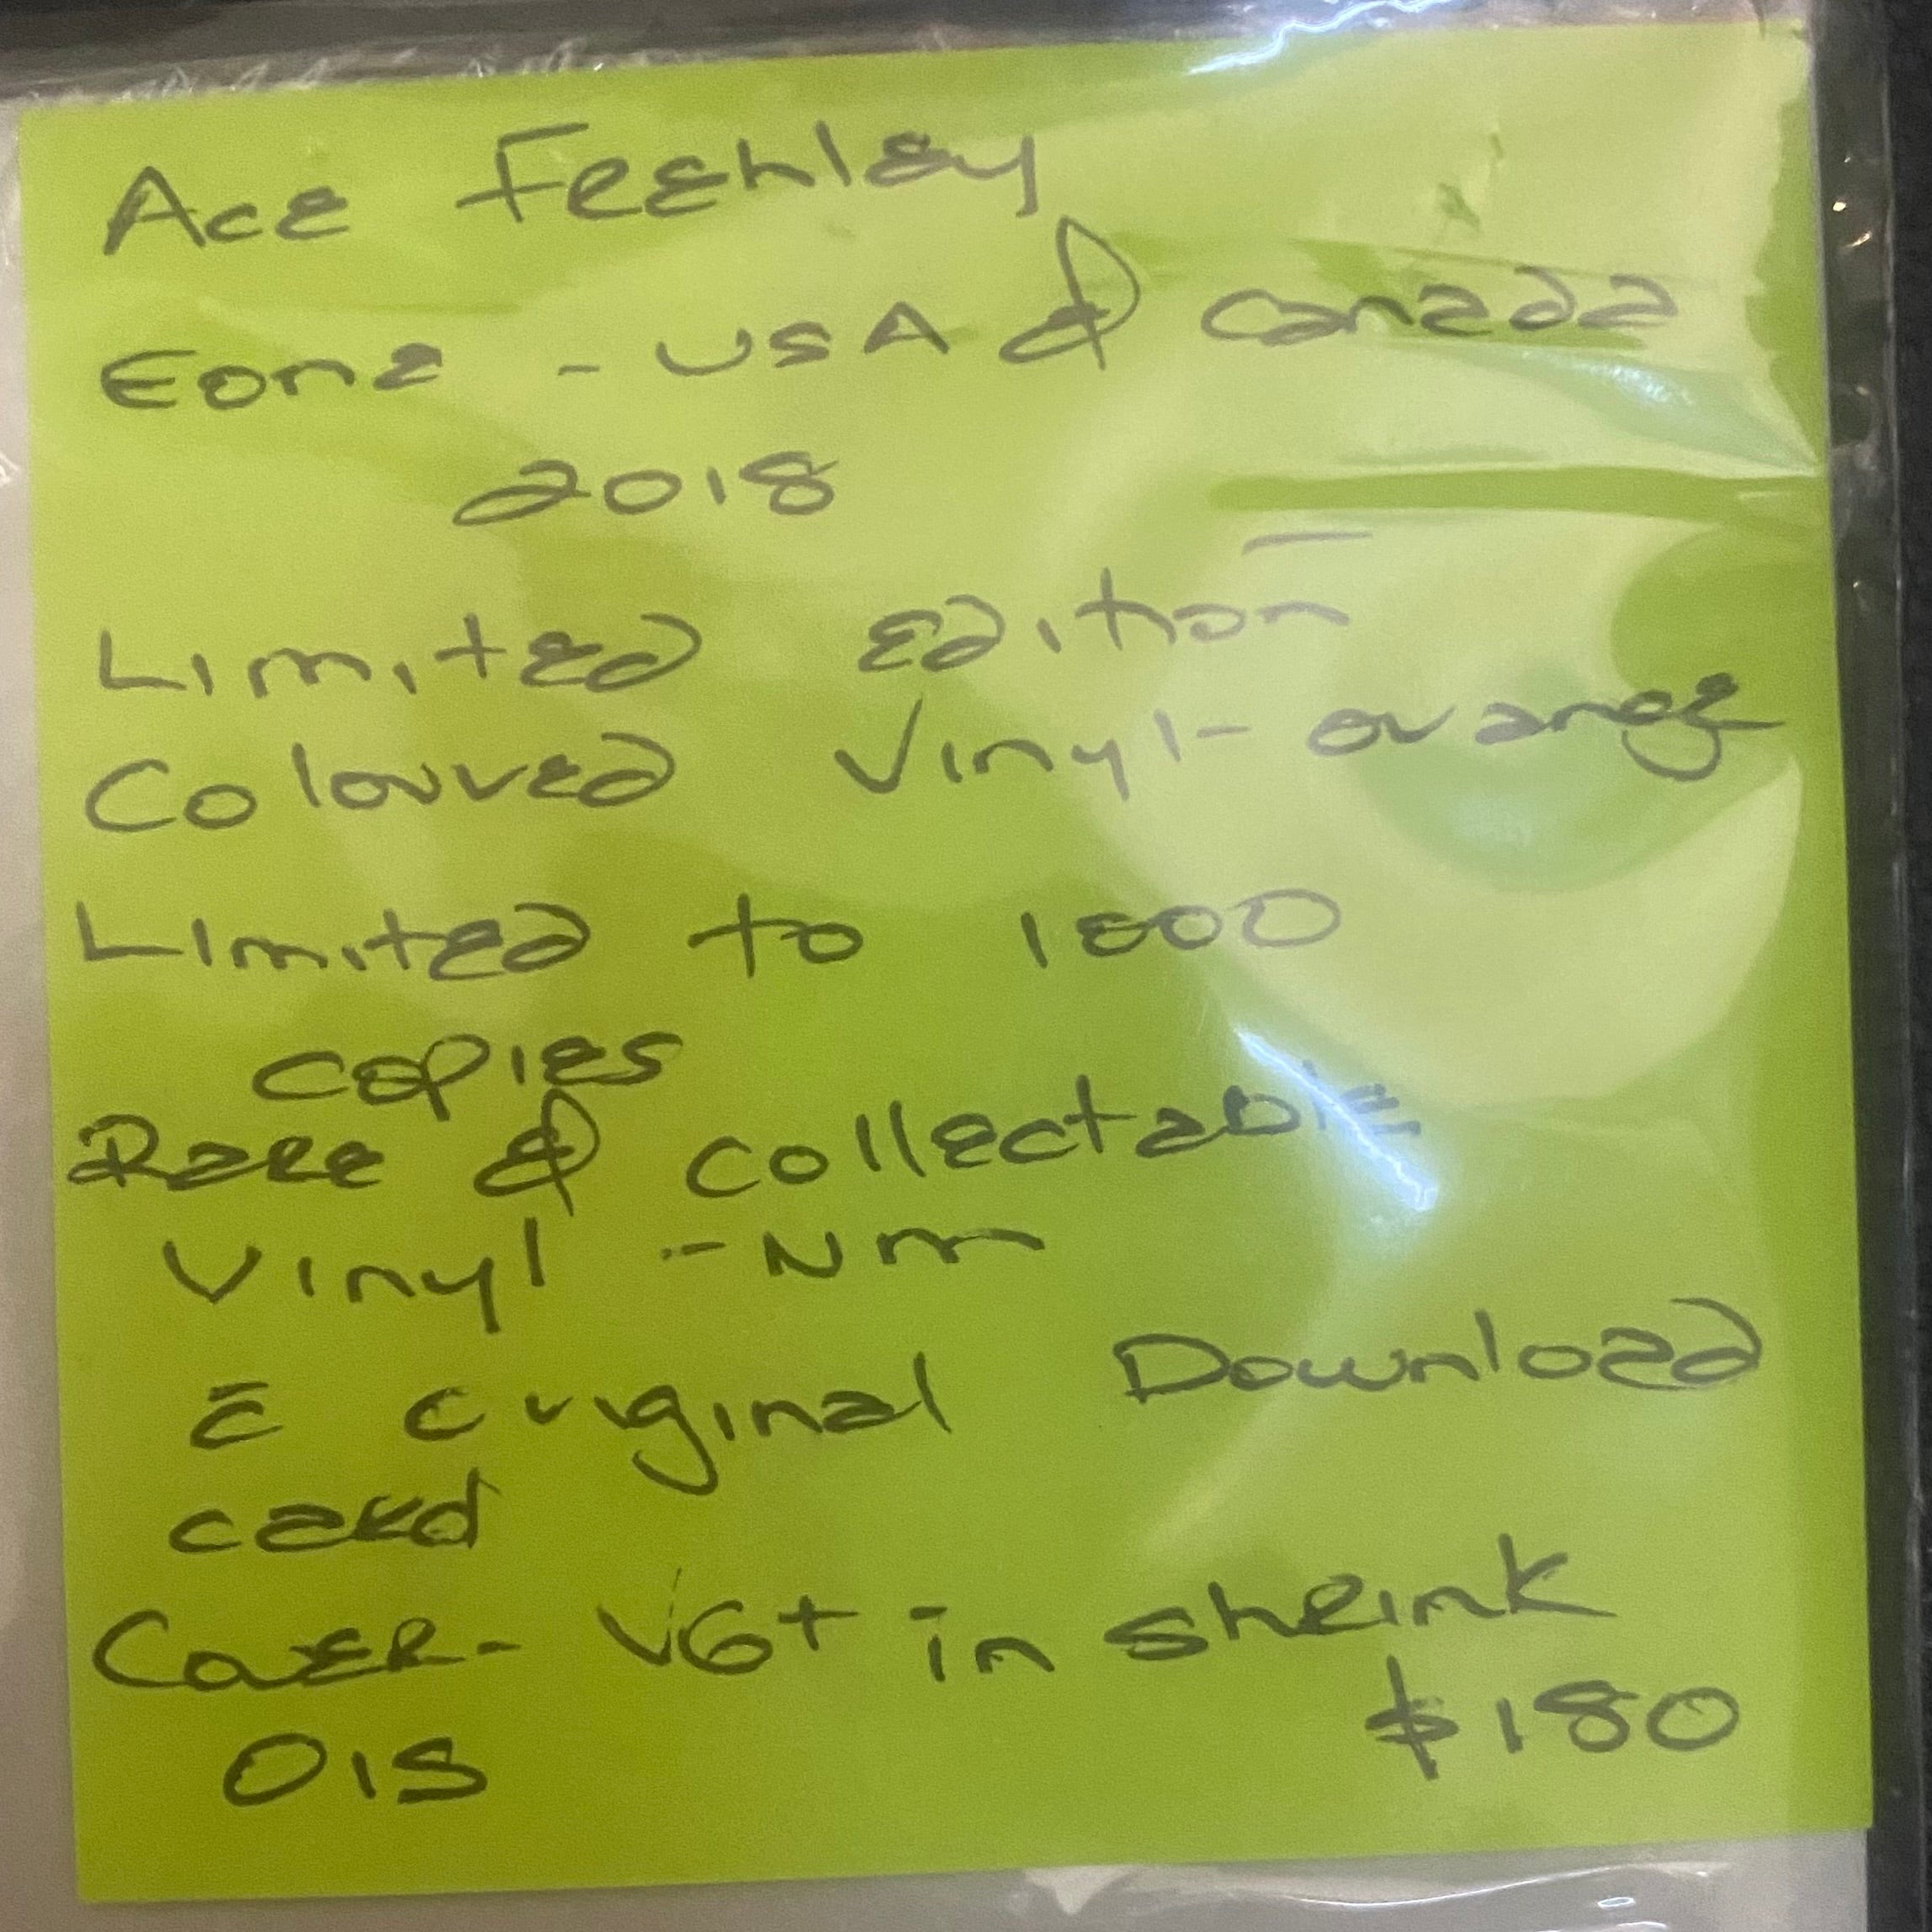 Ace Feehley
Eone - USA & Canada
2018
Limited Edition
Coloured Vinyl - orange
Limited to 1000
copies
Rare & collectable
Vinyl - Nm
c̄ original Download
card
Cover - VG+ in shrink
OIS $180